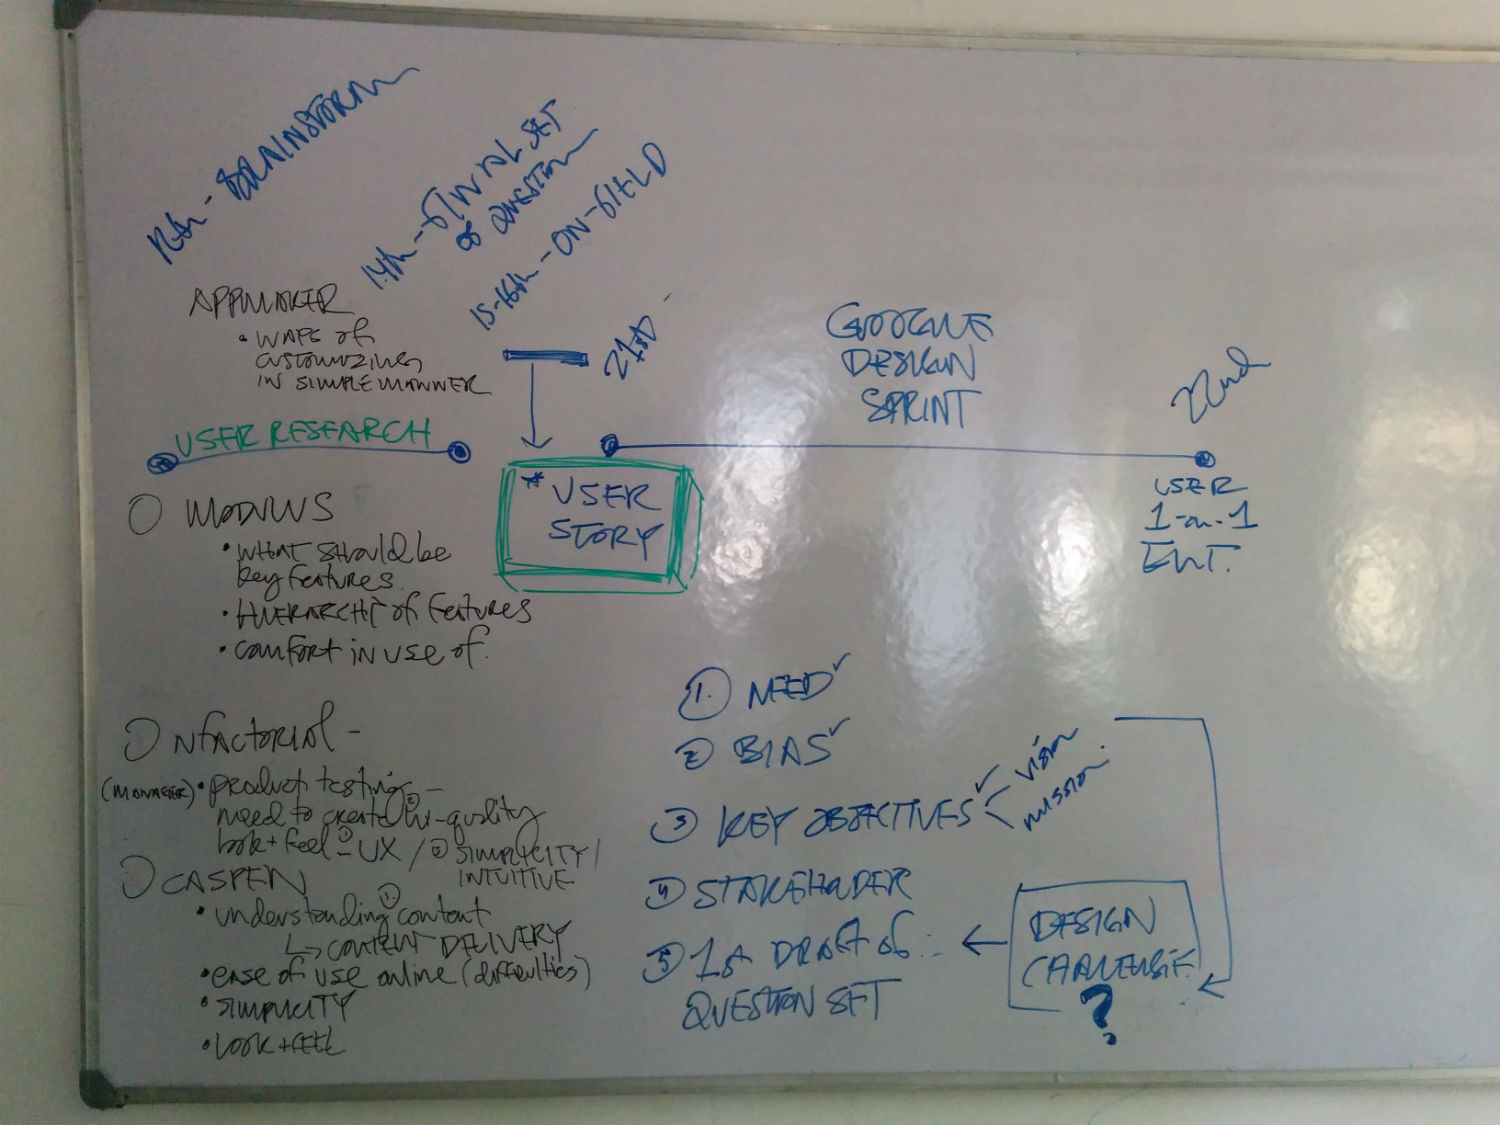 12th - BRAINSTORM
14th - FINAL SET
OF QUESTION
15-16th - ON-FIELD
21st
22nd
APPMAKER
• WAYS of
CUSTOMIZING
IN SIMPLE MANNER
USER RESEARCH
GOOGLE
DESIGN
SPRINT
* USER
STORY
USER
1-on-1
INT.
MODULUS
• WHAT SHOULD be
key features.
• HIERARCHY of features
• comfort in use of.
NFACTORIAL -
(MANAGER) • product testing -
need to create hi-quality ②
look + feel ① - UX / ③ SIMPLICITY /
INTUITIVE
CASPEN
• understanding content ①
↳ CONTENT DELIVERY
• ease of use online (difficulties)
• SIMPLICITY
• LOOK + FEEL
① NEED ✓
② BIAS ✓
③ KEY OBJECTIVES ✓ < vision
mission.
④ STAKEHOLDER
⑤ 1st DRAFT of :
QUESTION SET
← DESIGN
CHALLENGE
?